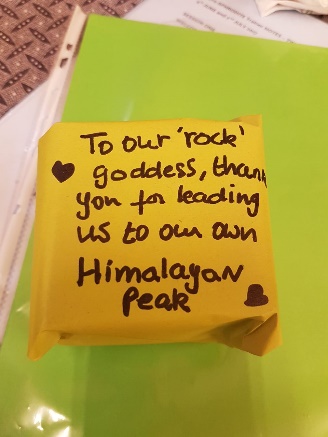 To our 'rock'
goddess, thank
you for leading
us to our own
Himalayan
Peak